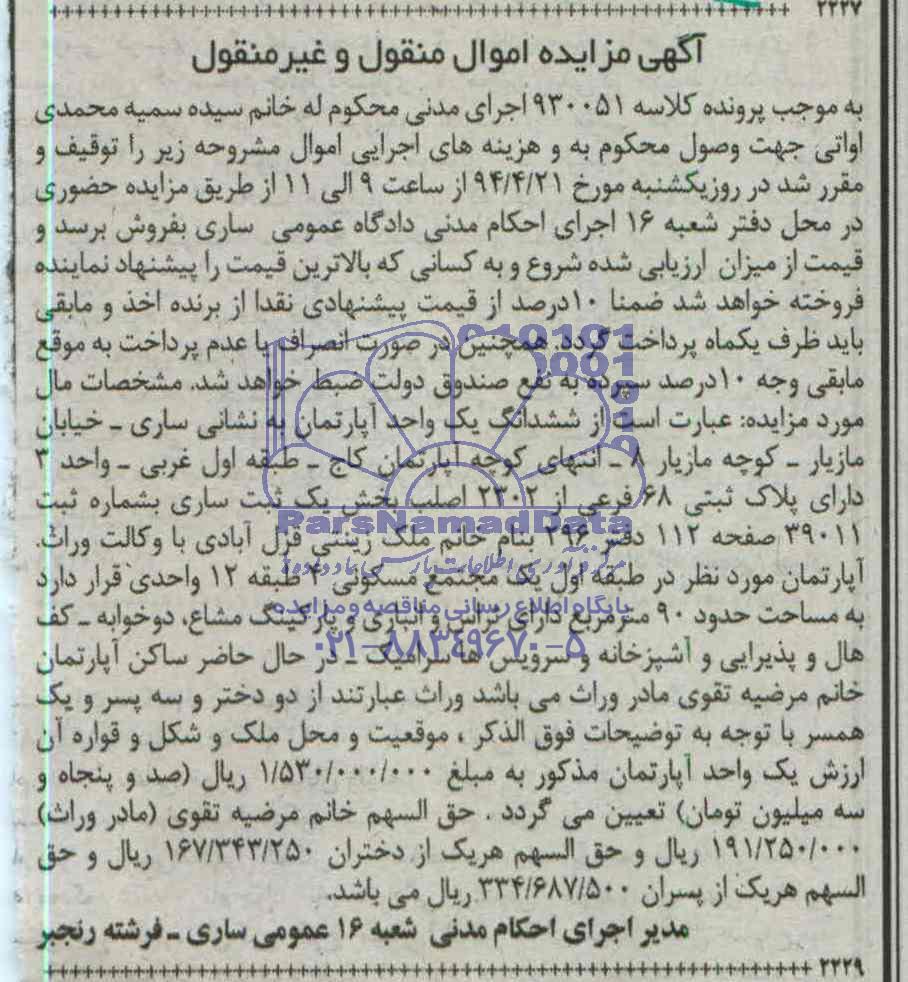 ۲۲۲۷
آگهی مزایده اموال منقول و غیرمنقول
به موجب پرونده کلاسه ۹۳۰۰۵۱ اجرای مدنی محکوم له خانم سیده سمیه محمدی
اواتی جهت وصول محکوم به و هزینه های اجرایی اموال مشروحه زیر را توقیف و
مقرر شد در روزیکشنبه مورخ ۹۴/۴/۲۱ از ساعت ۹ الی ۱۱ از طریق مزایده حضوری
در محل دفتر شعبه ۱۶ اجرای احکام مدنی دادگاه عمومی ساری بفروش برسد و
قیمت از میزان ارزیابی شده شروع و به کسانی که بالاترین قیمت را پیشنهاد نماینده
فروخته خواهد شد ضمنا ۱۰درصد از قیمت پیشنهادی نقدا از برنده اخذ و مابقی
باید ظرف یکماه پرداخت گردد. همچنین در صورت انصراف یا عدم پرداخت به موقع
مابقی وجه ۱۰درصد سپرده به نفع صندوق دولت ضبط خواهد شد. مشخصات مال
مورد مزایده: عبارت است از ششدانگ یک واحد آپارتمان به نشانی ساری ـ خیابان
مازیار ـ کوچه مازیار ۸ ـ انتهای کوچه آپارتمان کاج ـ طبقه اول غربی ـ واحد ۳
دارای پلاک ثبتی ۶۸ فرعی از ۲۳۰۲ اصلب بخش یک ثبت ساری بشماره ثبت
۳۹۰۱۱ صفحه ۱۱۲ دفتر ۲۹۶ بنام خانم ملک زینتی قزل آبادی با وکالت وراث.
آپارتمان مورد نظر در طبقه اول یک مجتمع مسکونی ۴ طبقه ۱۲ واحدی قرار دارد
به مساحت حدود ۹۰ مترمربع دارای تراس و انباری و پارکینگ مشاع، دوخوابه ـ کف
هال و پذیرایی و آشپزخانه و سرویس ها سرامیک ـ در حال حاضر ساکن آپارتمان
خانم مرضیه تقوی مادر وراث می باشد وراث عبارتند از دو دختر و سه پسر و یک
همسر با توجه به توضیحات فوق الذکر ، موقعیت و محل ملک و شکل و قواره آن
ارزش یک واحد آپارتمان مذکور به مبلغ ۱/۵۳۰/۰۰۰/۰۰۰ ریال (صد و پنجاه و
سه میلیون تومان) تعیین می گردد . حق السهم خانم مرضیه تقوی (مادر وراث)
۱۹۱/۲۵۰/۰۰۰ ریال و حق السهم هریک از دختران ۱۶۷/۳۴۳/۲۵۰ ریال و حق
السهم هریک از پسران ۳۳۴/۶۸۷/۵۰۰ ریال می باشد.
مدیر اجرای احکام مدنی شعبه ۱۶ عمومی ساری ـ فرشته رنجبر
۲۲۲۹
ParsNamadData
پایگاه اطلاع رسانی مناقصه و مزایده
۰۲۱-۸۸۳۴۹۶۷۰-۵